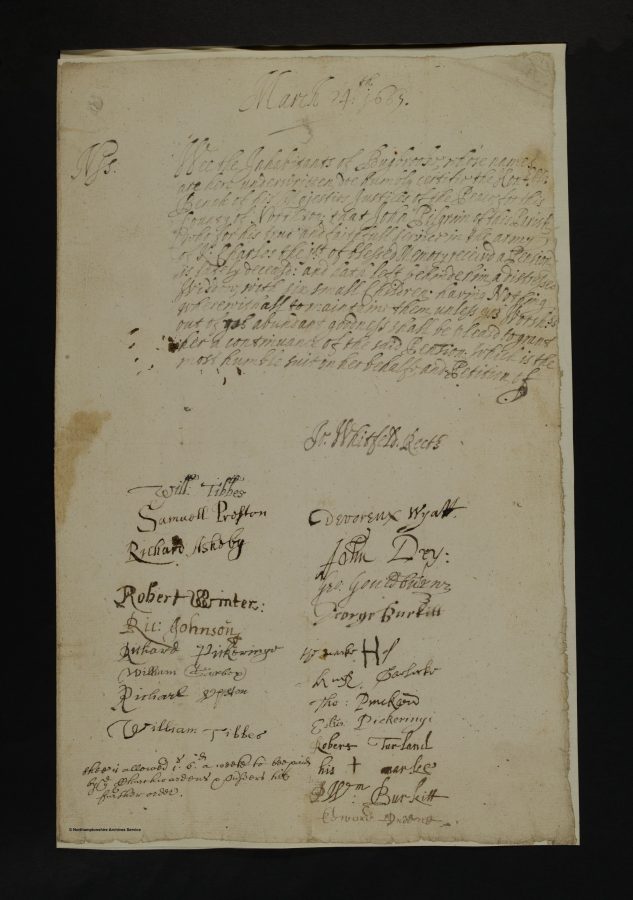 March 24th 1685.
Nps.
Wee the Inhabitants of Bugbrooke whose names
are here underwritten doe humbly certifie the Honble.
Bench of his Majesties Justices of the Peace for this
County of Northton, that John Pilgrim of this Parish
who for his true and faithfull service in the army
of K: Charles the 1st of blessed Memory received a Pension
is lately deceased: and hath left behinde him a distressed
Widdow with six small Children having Nothing
wherewithall to maintaine them unless yor Worships
out of yor abundant goodness shall be pleasd to grant
her a continuance of the said Pention which is the
most humble suit in her behalfe and Petition of
Jo. Whitfeld. Rectr
Will: Tibbes
Samuell Preston
Richard Ashby
Robert Winter:
Ric: Johnson
Richard Pickeringe
William
Richard Upton
William Tibbes
Devoreux Wyatt.
John Dey:
Geo: Gouldburn
George Burkitt
the marke H of
Hugh
Tho:
Pickeringe
Robert Turland
his + marke
Wm Burkitt
Edward Greene
there is allowed 1s. 6d. a weeke to bee paid
by ye Churchwardens & Ovrseers till
further order.
© Northamptonshire Archives Service